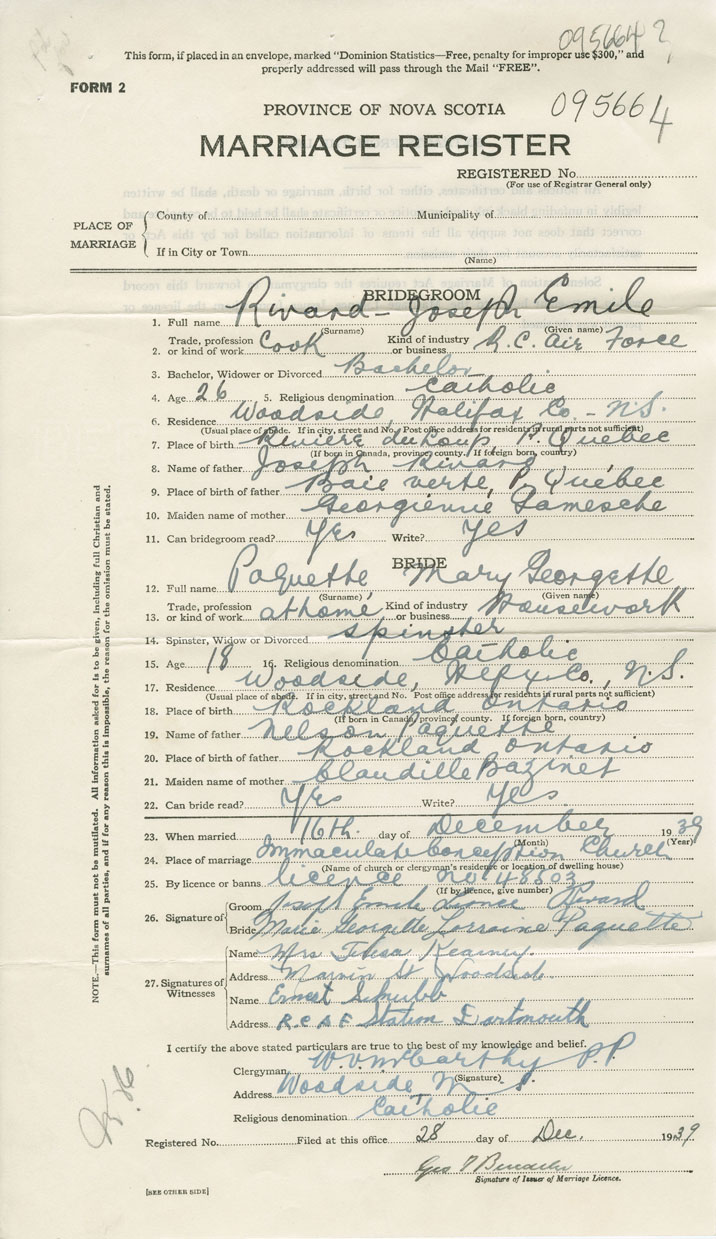 095664 ?
This form, if placed in an envelope, marked "Dominion Statistics—Free, penalty for improper use $300," and
properly addressed will pass through the Mail "FREE".
FORM 2
PROVINCE OF NOVA SCOTIA 095664
MARRIAGE REGISTER
REGISTERED No.
(For use of Registrar General only)
PLACE OF MARRIAGE
County of Municipality of
If in City or Town
(Name)
BRIDEGROOM
1. Full name Rivard - Joseph Emile
(Surname) (Given name)
2. Trade, profession or kind of work Cook Kind of industry or business R.C. Air Force
3. Bachelor, Widower or Divorced Bachelor
4. Age 26 5. Religious denomination Catholic
6. Residence Woodside, Halifax Co. - N.S.
(Usual place of abode. If in city, street and No. Post office address for residents in rural parts not sufficient)
7. Place of birth Rivière du Loup, P. Quebec
(If born in Canada, province, county. If foreign born, country)
8. Name of father Joseph Rivard
9. Place of birth of father Baie verte, P. Québec
10. Maiden name of mother Georgienne
11. Can bridegroom read? Yes Write? Yes
BRIDE
12. Full name Paquette Mary Georgette
(Surname) (Given name)
13. Trade, profession or kind of work at home Kind of industry or business Housework
14. Spinster, Widow or Divorced spinster
15. Age 18 16. Religious denomination Catholic
17. Residence Woodside, Hlfx Co., N.S.
(Usual place of abode. If in city, street and No. Post office address for residents in rural parts not sufficient)
18. Place of birth Rockland Ontario
(If born in Canada, province, county. If foreign born, country)
19. Name of father Nelson Paquette
20. Place of birth of father Rockland Ontario
21. Maiden name of mother Claudille Bazinet
22. Can bride read? Yes Write? Yes
23. When married 16th. day of December 1939
(Month) (Year)
24. Place of marriage Immaculate Conception Church
(Name of church or clergyman's residence or location of dwelling house)
25. By licence or banns licence no 48803
(If by licence, give number)
26. Signature of
Groom Joseph Emile Rivard
Bride Marie Georgette Lorraine Paquette
27. Signatures of Witnesses
Name Mrs Teresa Kearney
Address St Woodside
Name Ernest
Address R.C.A.F Station Dartmouth
I certify the above stated particulars are true to the best of my knowledge and belief.
Clergyman McCarthy P.P
(Signature)
Address Woodside N S.
Religious denomination Catholic
Registered No. Filed at this office 28 day of Dec. 1939.
Geo
Signature of Issuer of Marriage Licence.
[SEE OTHER SIDE]
NOTE.—This form must not be mutilated. All information asked for is to be given, including full Christian and
surnames of all parties, and if for any reason this is impossible, the reason for the omission must be stated.